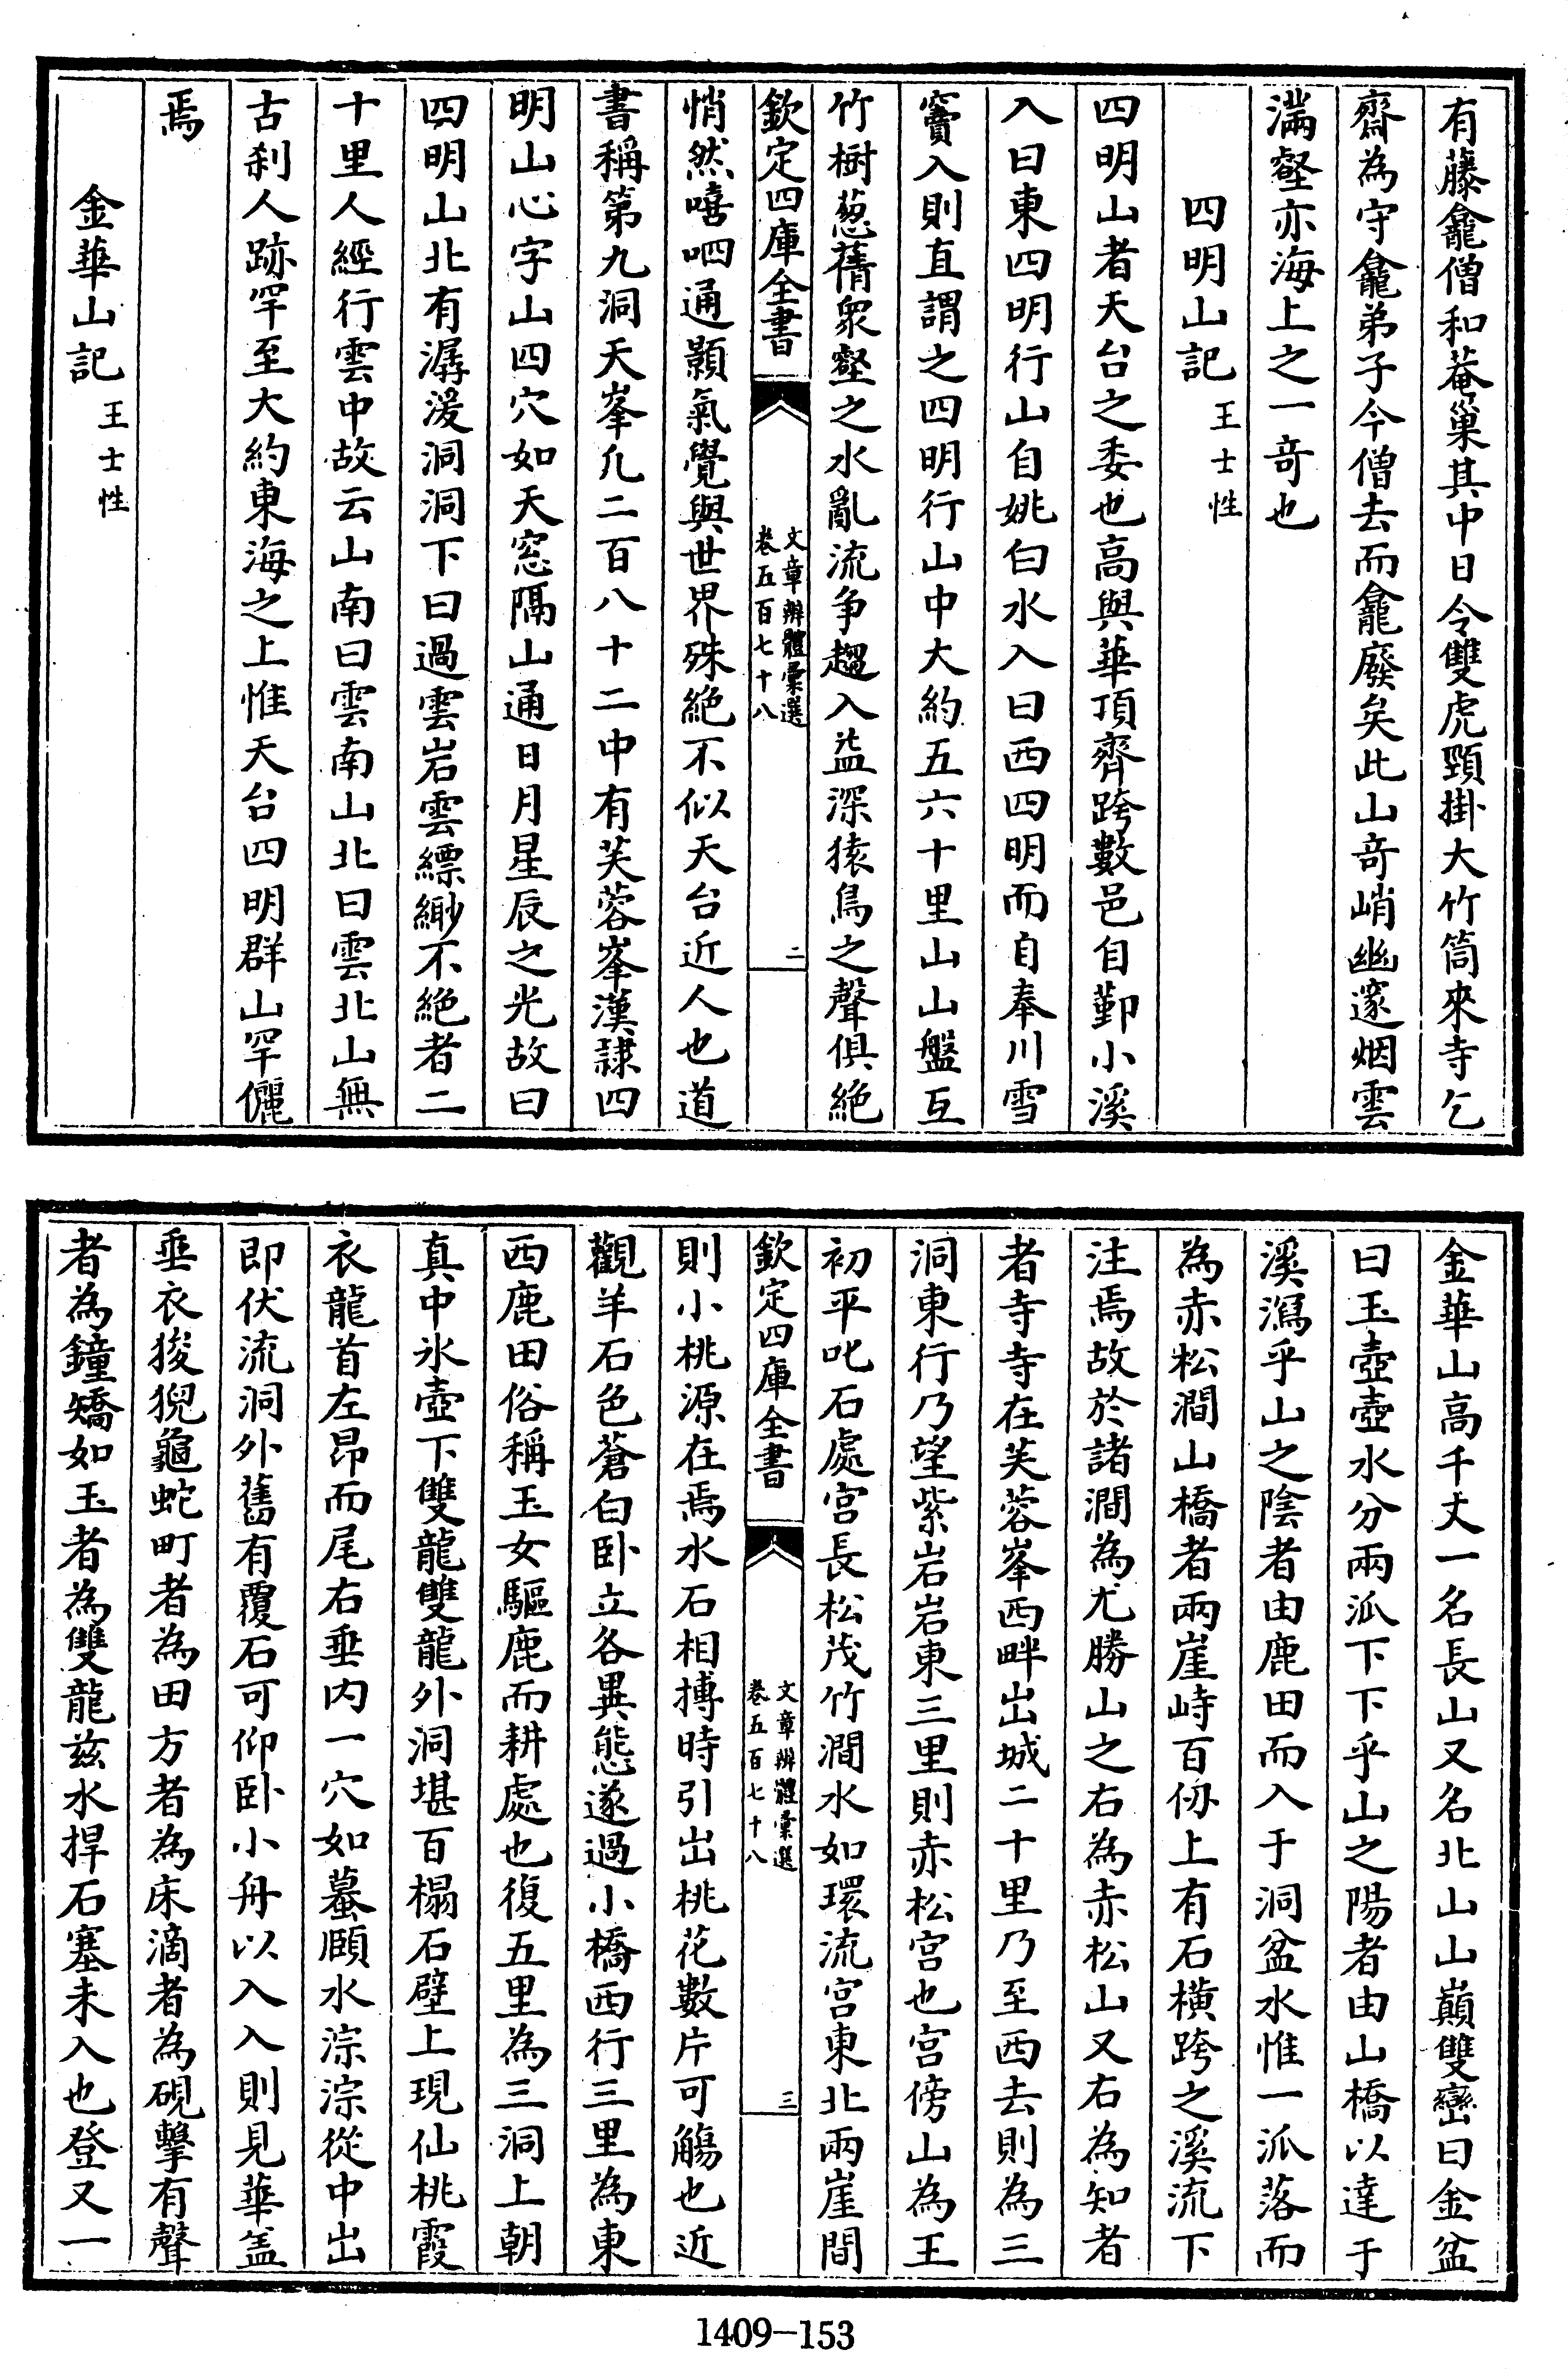 有藤龕僧和菴巢其中日令雙虎頸掛大竹筒來寺乞
齋為守龕弟子今僧去而龕廢矣此山竒峭幽邃烟雲
滿壑亦海上之一竒也
四明山記 王士性
四明山者天台之委也高與華頂齊跨數邑自鄞小溪
入曰東四明行山自姚白水入曰西四明而自奉川雪
竇入則直謂之四明行山中大約五六十里山山盤互
竹樹葱蒨衆壑之水亂流争趨入益深猿鳥之聲俱絶
欽定四庫全書 文章辨體彙選 卷五百七十八 二
悄然嘻呬通顥氣覺與世界殊絶不似天台近人也道
書稱第九洞天峯凡二百八十二中有芙蓉峯漢隷四
明山心字山四穴如天窓隔山通日月星辰之光故曰
四明山北有潺湲洞洞下曰過雲岩雲縹緲不絶者二
十里人經行雲中故云山南曰雲南山北曰雲北山無
古刹人跡罕至大約東海之上惟天台四明群山罕儷
焉
金華山記 王士性
金華山高千丈一名長山又名北山山巔雙巒曰金盆
曰玉壺壺水分兩派下下乎山之陽者由山橋以達于
溪瀉乎山之陰者由鹿田而入于洞盆水惟一派落而
為赤松澗山橋者兩崖峙百仞上有石横跨之溪流下
注焉故於諸澗為尤勝山之右為赤松山又右為知者
者寺寺在芙蓉峯西畔出城二十里乃至西去則為三
洞東行乃望紫岩岩東三里則赤松宫也宫傍山為王
初平叱石處宫長松茂竹澗水如環流宫東北兩崖間
欽定四庫全書 文章辨體彙選 卷五百七十八 三
則小桃源在焉水石相搏時引出桃花數片可觴也近
觀羊石色蒼白卧立各異態遂過小橋西行三里為東
西鹿田俗稱玉女驅鹿而耕處也復五里為三洞上朝
真中氷壺下雙龍雙龍外洞堪百榻石壁上現仙桃霞
衣龍首左昂而尾右垂内一穴如蟇頤水淙淙從中出
即伏流洞外舊有覆石可仰卧小舟以入入則見華盖
垂衣狻猊龜蛇町者為田方者為床滴者為硯擊有聲
者為鐘矯如玉者為雙龍兹水捍石塞未入也登又一
1409-153